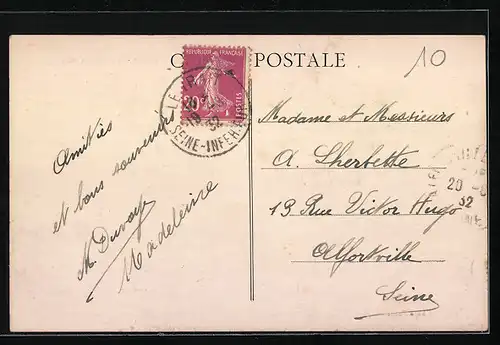 POSTALE
10
REPUBLIQUE FRANÇAISE
20c
POSTES
LE
20
19
32
SEINE-INFER
Amitiés
et bons souvenirs
M. Duvay
Madeleine
Madame et Messieurs
A. Lherbette
13 Rue Victor Hugo
Alfortville
Seine
20-8
32